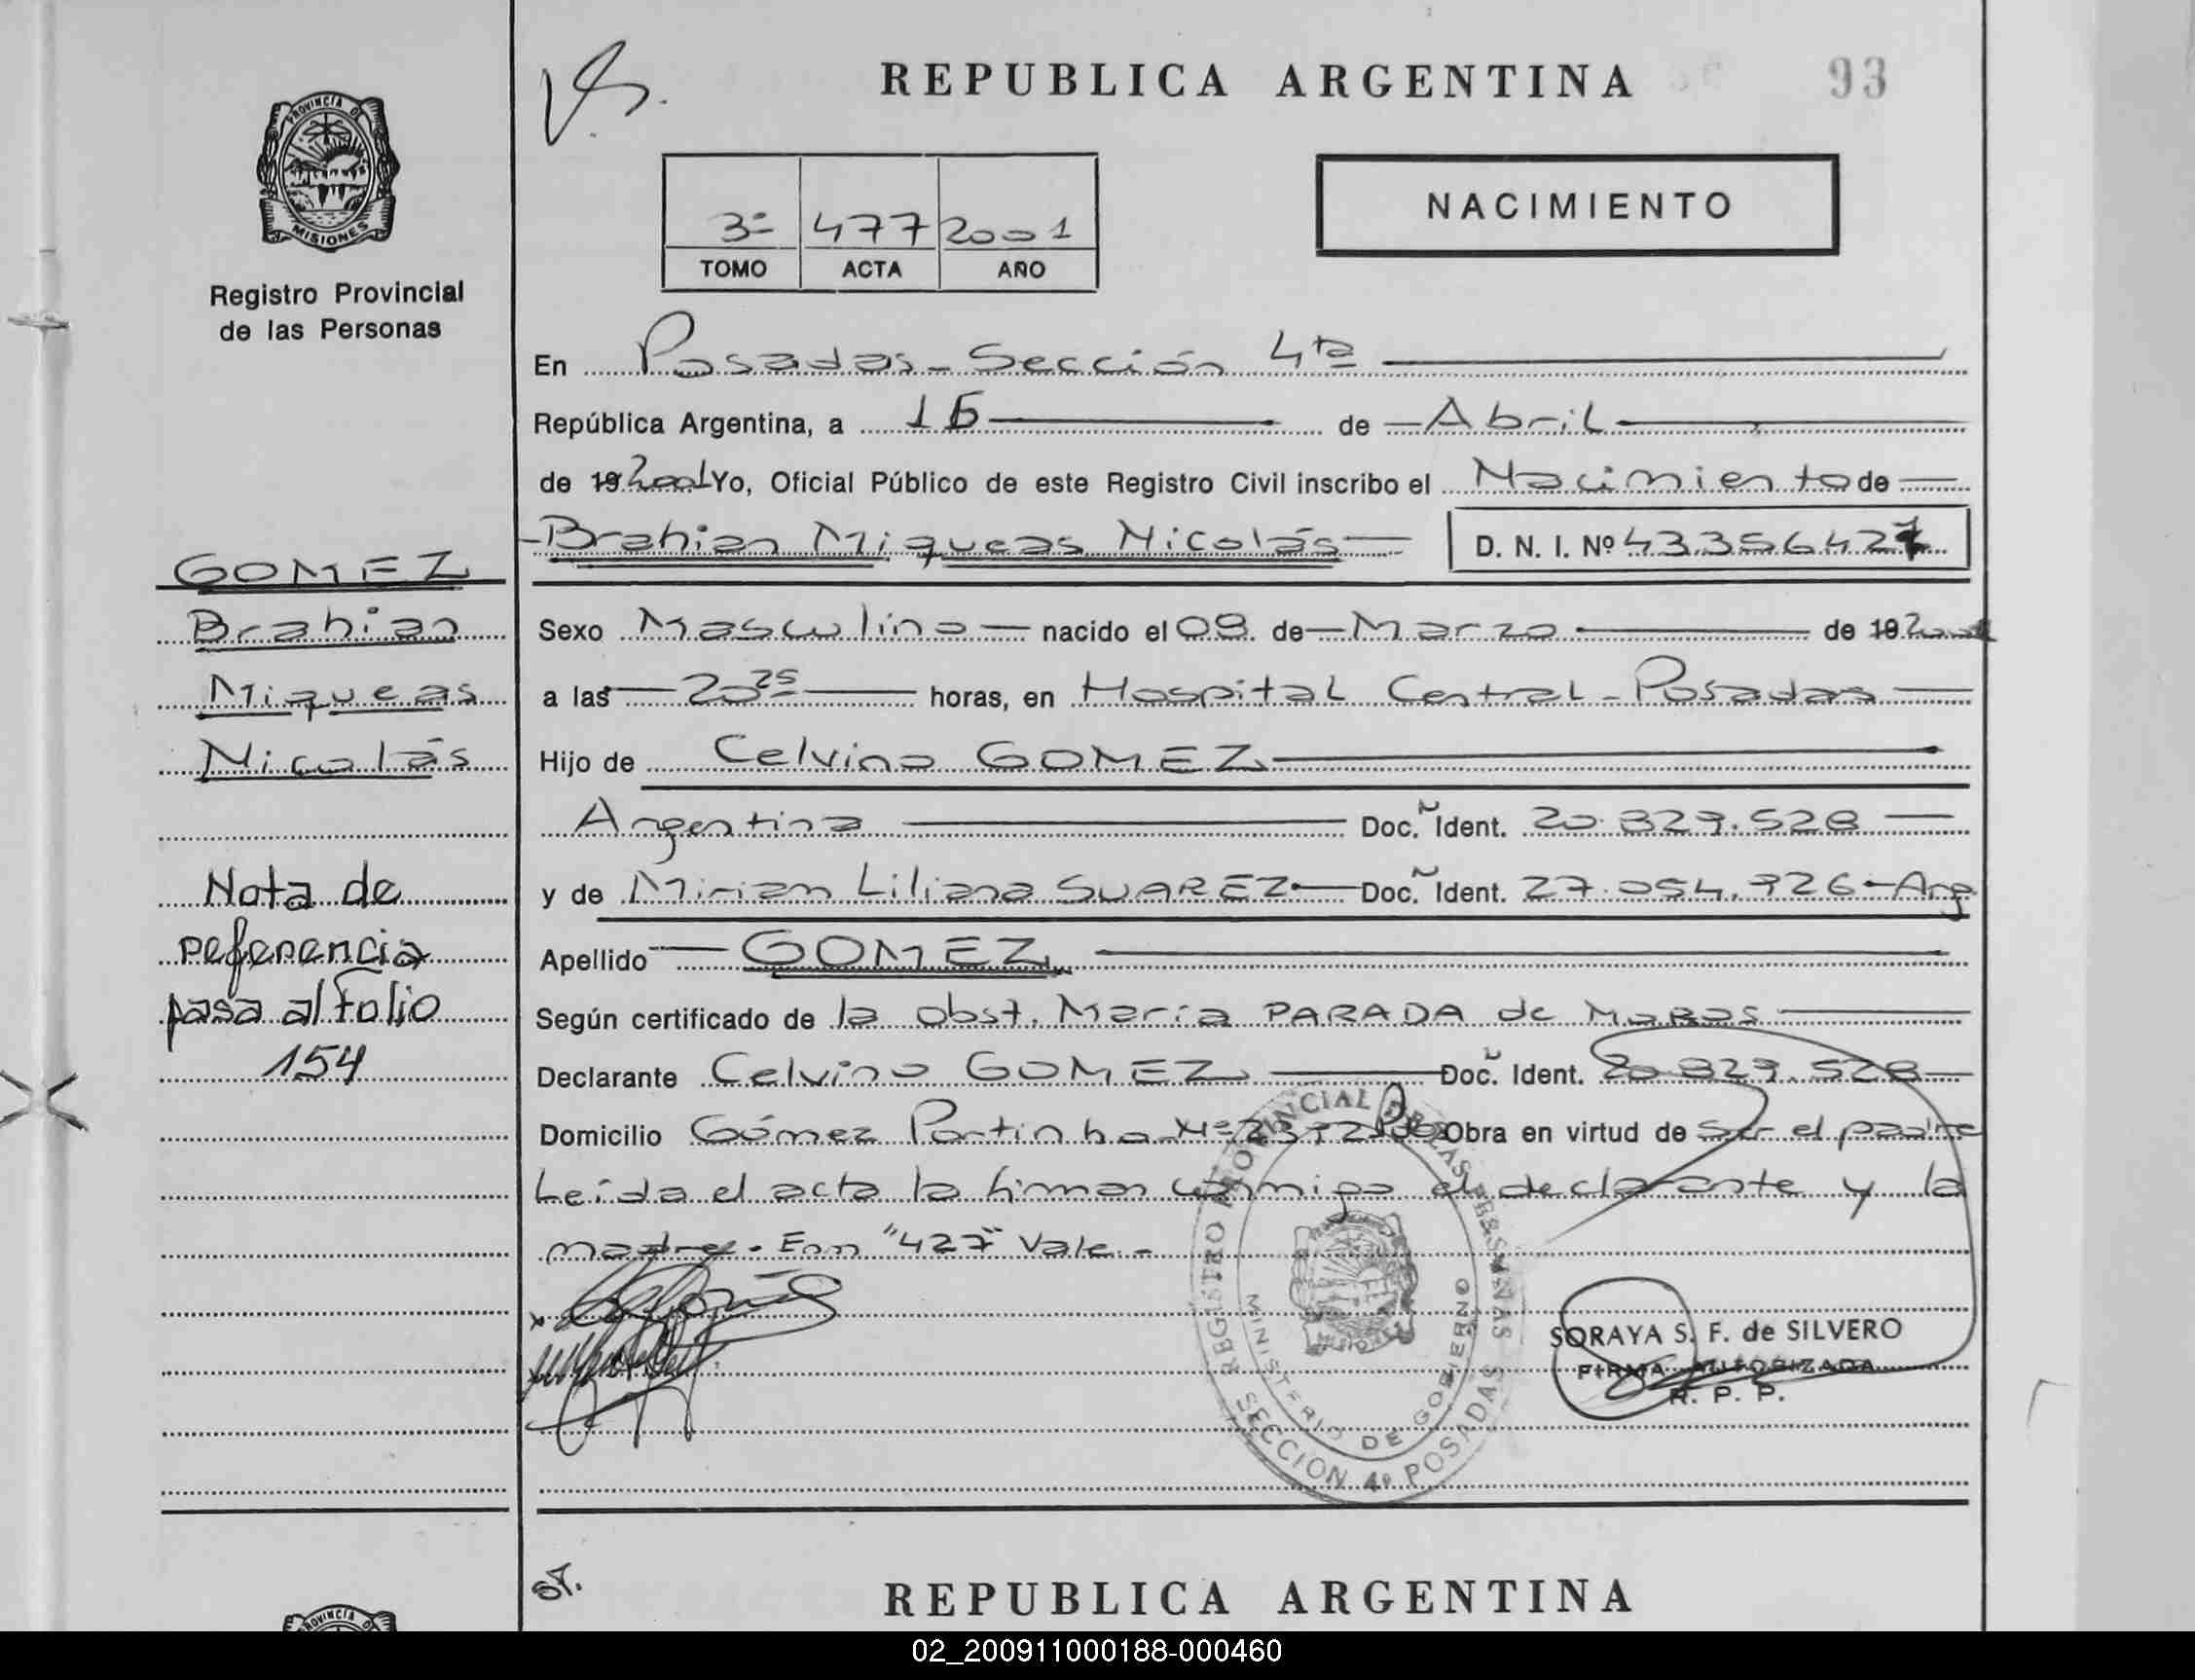 REPUBLICA ARGENTINA
93
PROVINCIA DE
MISIONES
Registro Provincial
de las Personas
NACIMIENTO
3º 477 2001
TOMO ACTA AÑO
En Posadas - Sección 4ta
República Argentina, a 16 de Abril
de 19 2001 Yo, Oficial Público de este Registro Civil inscribo el Nacimiento de
Brahian Miqueas Nicolás D. N. I. Nº 43356427
GOMEZ
Brahian
Miqueas
Nicolás
Nota de
referencia
pasa al Folio
154
Sexo Masculino nacido el 09 de Marzo de 19 2001
a las 20 25 horas, en Hospital Central - Posadas
Hijo de Celvino GOMEZ
Argentina Doc. Ident. 20.829.528
y de Miriam Liliana SUAREZ Doc. Ident. 27.054.726 - Arg
Apellido GOMEZ
Según certificado de la obst. María PARADA de
Declarante Celvino GOMEZ Doc. Ident. 20.829.528
Domicilio Gómez Portinho Nº Obra en virtud de ser el padre
Leída el acta la firman conmigo el declarante y la
madre. Enm "427" Vale -
REGISTRO PROVINCIAL DE LAS PERSONAS
MINISTERIO DE GOBIERNO
SECCION 4º POSADAS
SORAYA S. F. de SILVERO
FIRMA AUTORIZADA
R. P. P.
REPUBLICA ARGENTINA
PROVINCIA
02_200911000188-000460